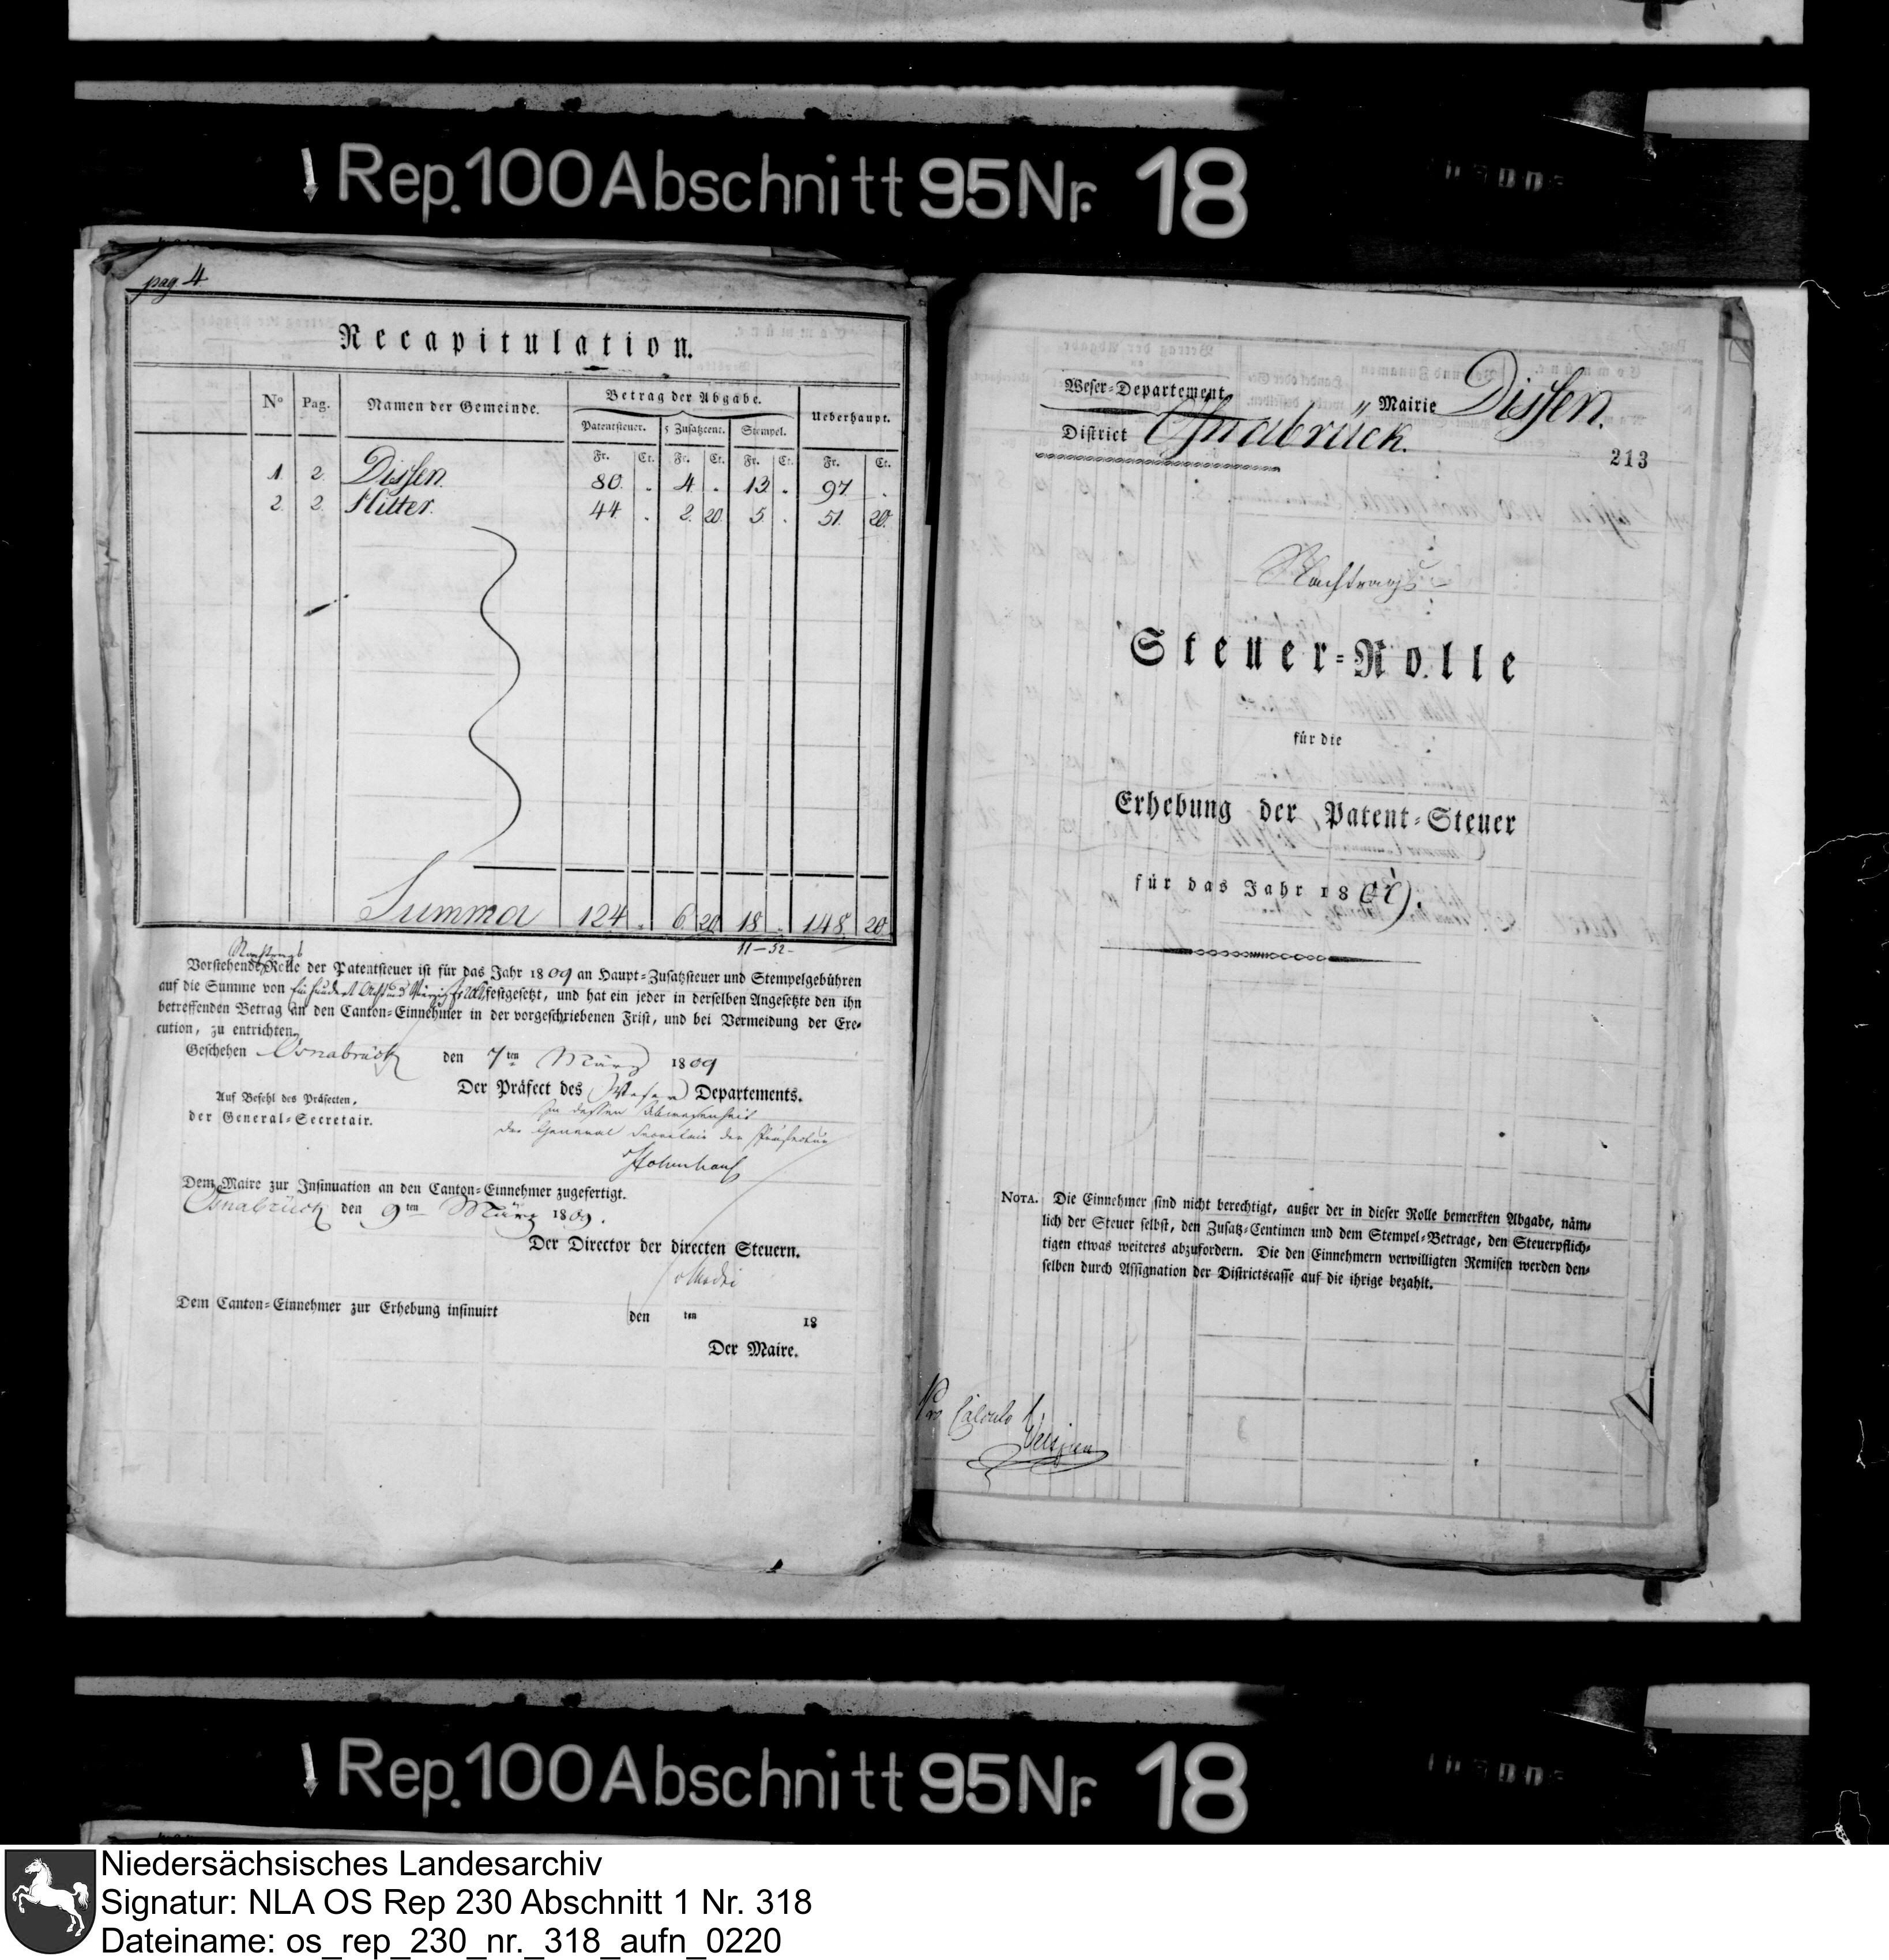 Rep. 100 Abschnitt 95 Nr. 18
pag. 4
Recapitulation.
No Pag. Namen der Gemeinde. Betrag der Abgabe. Ueberhaupt.
Patentsteuer. 5 Zusatzcent. Stempel.
Fr. Ct. Fr. Ct. Fr. Ct. Fr. Ct.
1. 2. Dissen 80. . 4. . 13 . 97. .
2. 2. Hilter. 44 . 2. 20. 5. . 51. 20.
Summa 124 . 6. 20 18 . 148. 20
11–52
Nachtrags
Vorstehende Rolle der Patentsteuer ist für das Jahr 1809 an Haupt-Zusatzsteuer und Stempelgebühren
auf die Summe von Ein hundert Acht und Vierzig festgesetzt, und hat ein jeder in derselben Angesetzte den ihn
betreffenden Betrag an den Canton-Einnehmer in der vorgeschriebenen Frist, und bei Vermeidung der Exe-
cution, zu entrichten.
Geschehen Osnabrück den 7ten März 1809
Der Präfect des Weser Departements.
Auf Befehl des Präfecten,
der General-Secretair.
In dessen Abwesenheit
der General Secretair der Präfectur
Dem Maire zur Insinuation an den Canton-Einnehmer zugefertigt.
Osnabrück den 9ten März 1809.
Der Director der directen Steuern.
Dem Canton-Einnehmer zur Erhebung insinuirt den ten 18
Der Maire.
Weser-Departement „ Mairie Dissen.
District Osnabrück.
213
Nachtrags
Steuer-Rolle
für die
Erhebung der Patent-Steuer
für das Jahr 18
NOTA. Die Einnehmer sind nicht berechtigt, außer der in dieser Rolle bemerkten Abgabe, näm-
lich der Steuer selbst, den Zusatz-Centimen und dem Stempel-Betrage, den Steuerpflich-
tigen etwas weiteres abzufordern. Die den Einnehmern verwilligten Remisen werden den-
selben durch Assignation der Districtscasse auf die ihrige bezahlt.
Pro Calculo
Rep. 100 Abschnitt 95 Nr. 18
Niedersächsisches Landesarchiv
Signatur: NLA OS Rep 230 Abschnitt 1 Nr. 318
Dateiname: os_rep_230_nr._318_aufn_0220